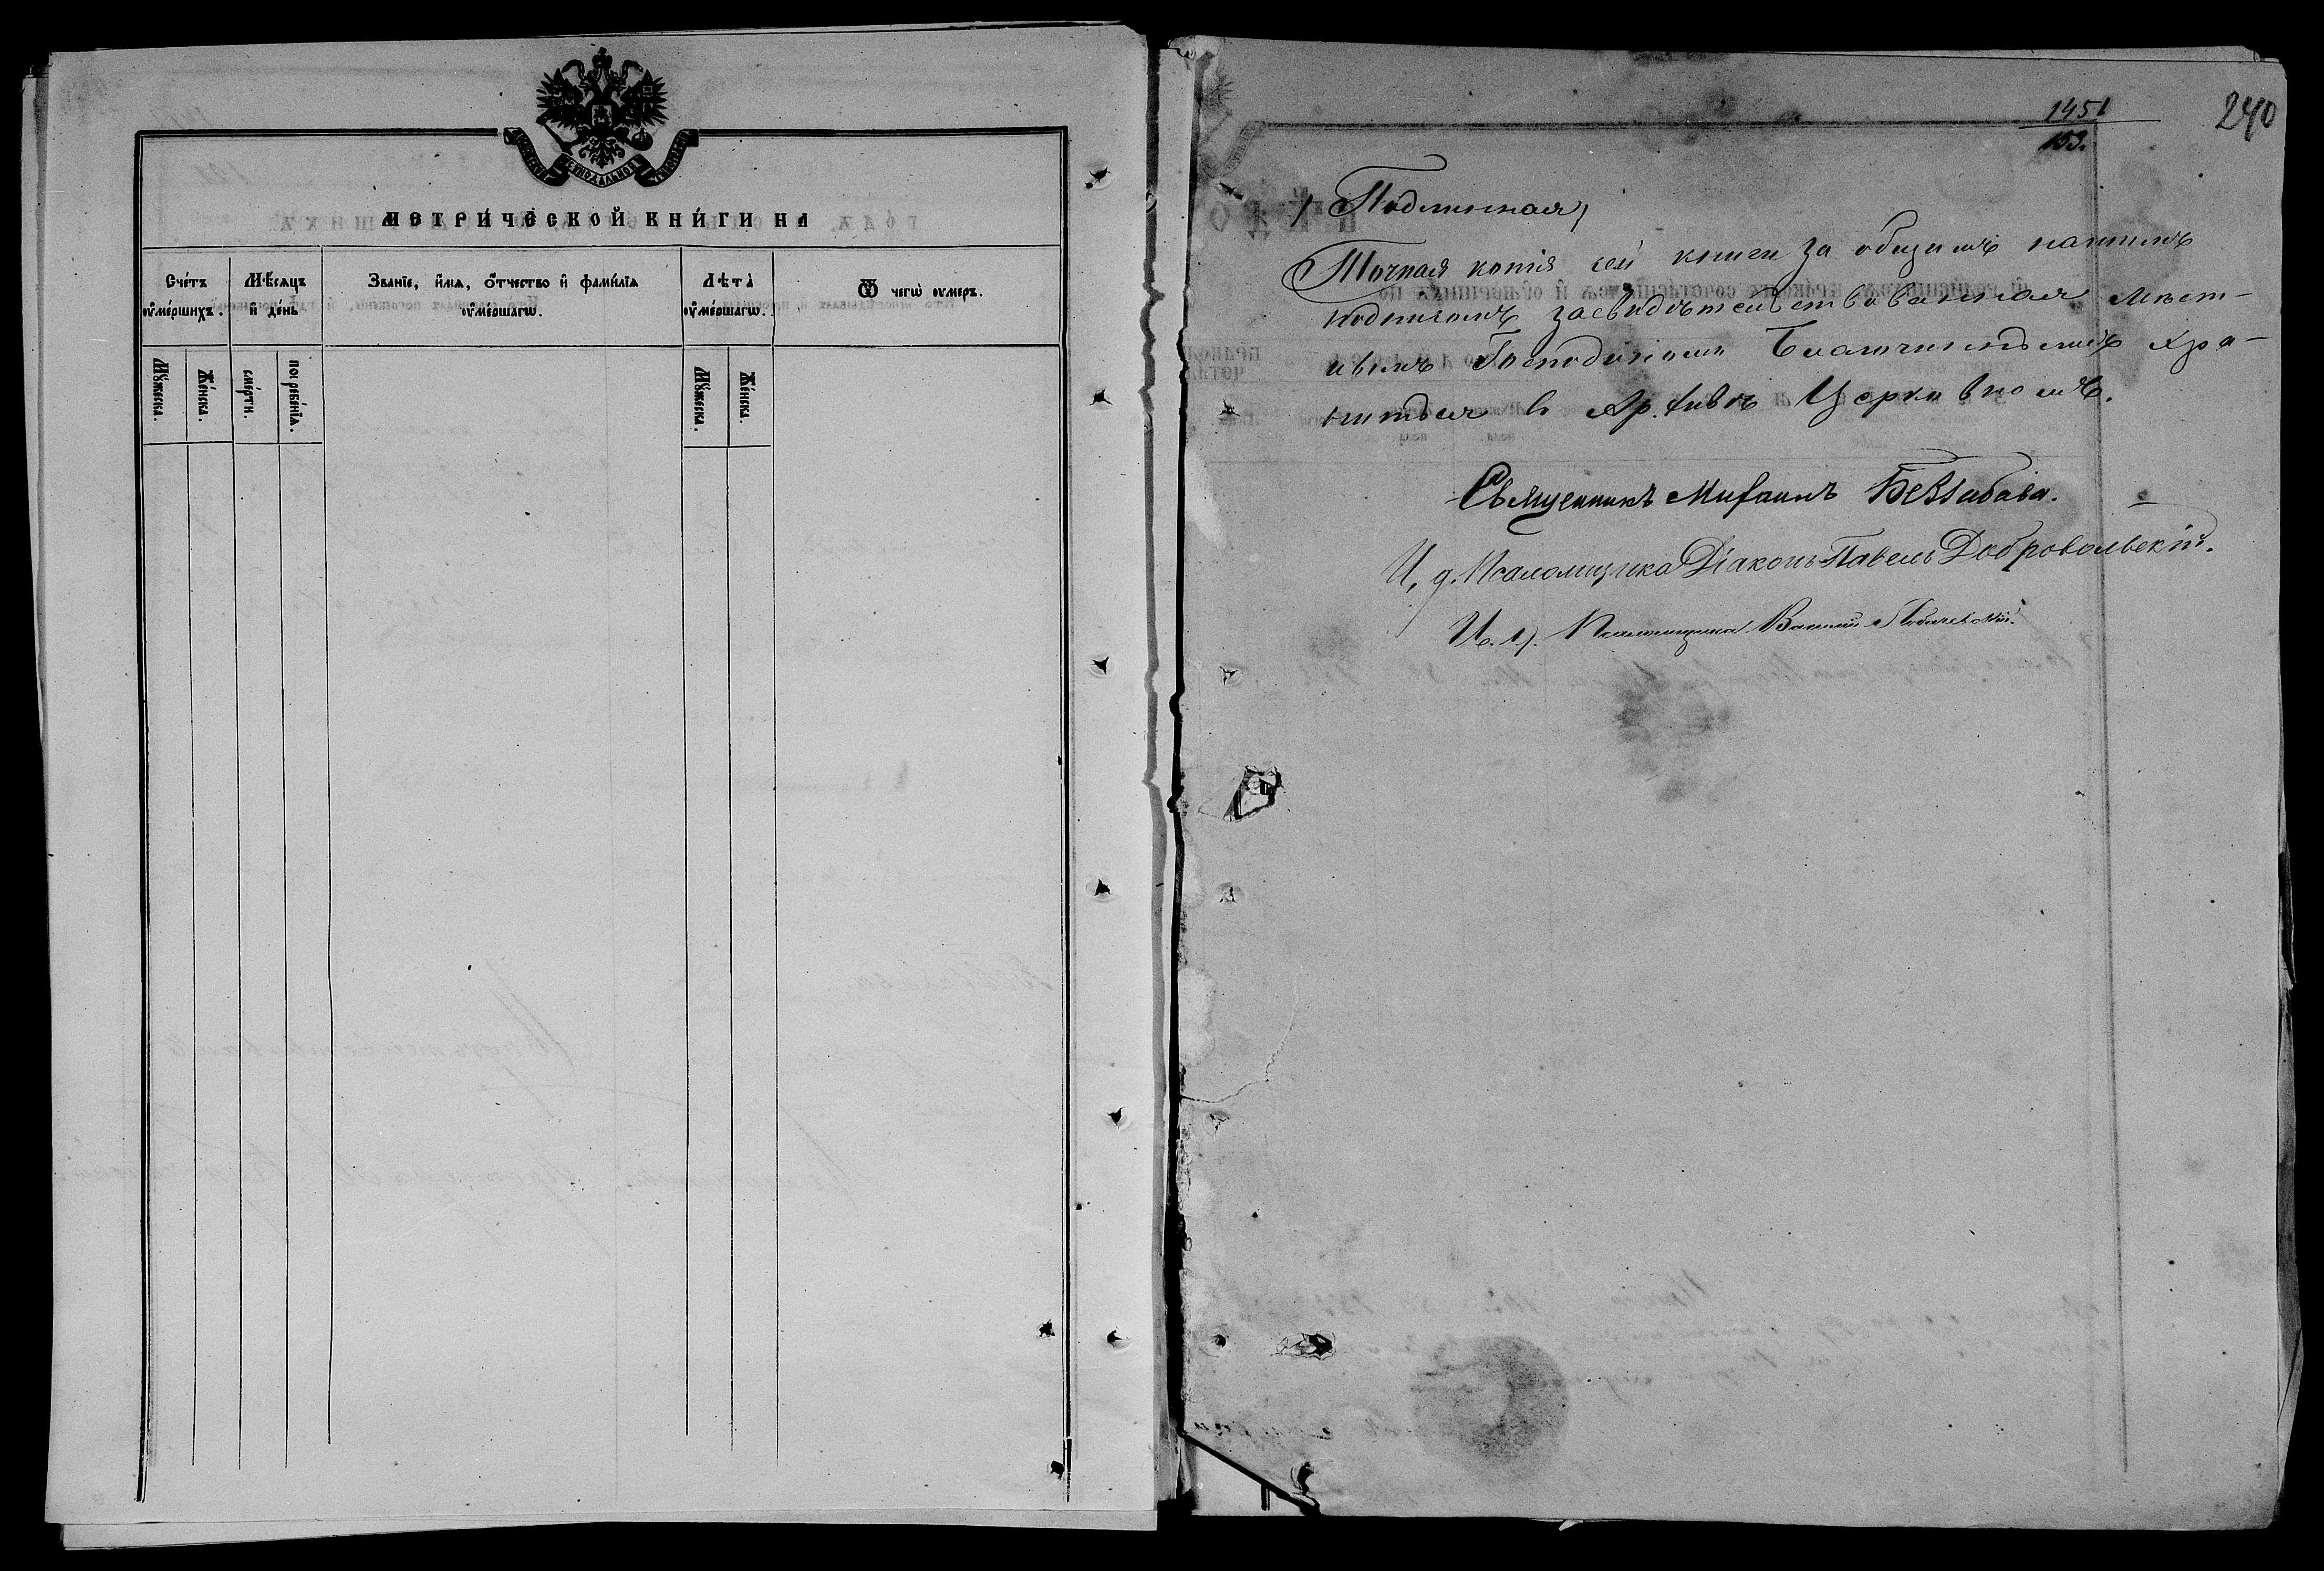 МЕТРИ́ЧЕСКОЙ КНИ́ГИ НА
Сче́тъ
ᲂу҆ме́ршихъ.
Мѣ́сяцъ
и҆ день
Зва́нїе, и҆́мѧ, ѻ҆́тчество и҆ фами́лїѧ
ᲂу҆ме́ршагѡ.
Лѣ́та̀
ᲂу҆ме́ршагѡ.
Ѿ чегѡ̀ ᲂу҆меръ.
Мꙋ́жеска.
Же́нска.
сме́рти.
погребе́нїѧ.
Мꙋ́жеска.
Же́нска.
СѴНОДАЛЬНОЙ
1451
153.
240
/ Подлинная /
Точная копія сей книги за общимъ нашимъ
подписомъ засвидѣтельствованная мѣст-
нымъ Господиномъ Благочиннымъ хра-
нится въ Архивѣ Церковномъ.
Священникъ Михаилъ
И. д. Псаломщика Діаконъ Павелъ Добровольскій.
И. д. Псаломщика Василій